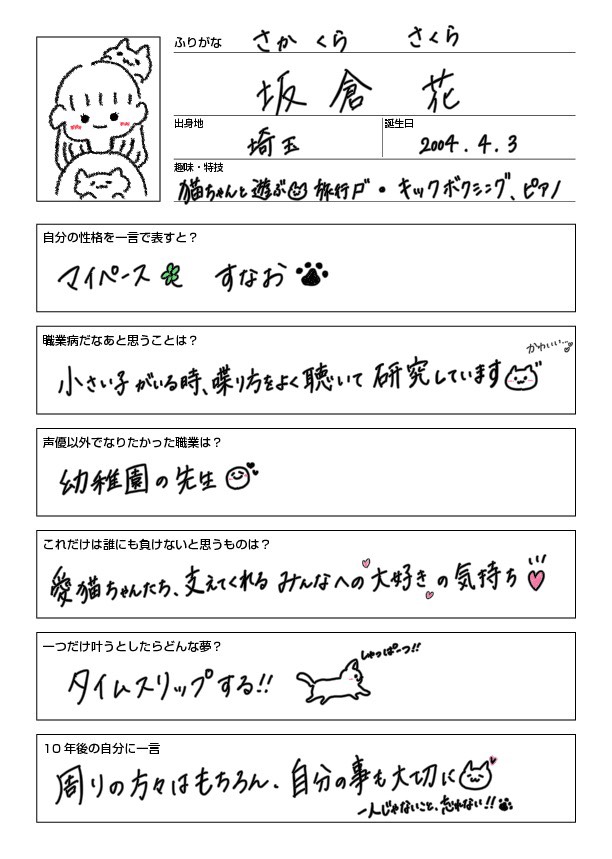 ふりがな さか くら さくら
坂 倉 花
出身地 埼玉 誕生日 2004.4.3
趣味・特技
猫ちゃんと遊ぶ 旅行 ・ キックボクシング、ピアノ
自分の性格を一言で表すと？
マイペース すなお
職業病だなあと思うことは？
かわいい…
小さい子がいる時、喋り方をよく聴いて研究しています
声優以外でなりたかった職業は？
幼稚園の先生
これだけは誰にも負けないと思うものは？
愛猫ちゃんたち、支えてくれるみんなへの大好きの気持ち
一つだけ叶うとしたらどんな夢？
しゅっぱーつ!!
タイムスリップする!!
10年後の自分に一言
周りの方々はもちろん、自分の事も大切に
一人じゃないこと、忘れない!!